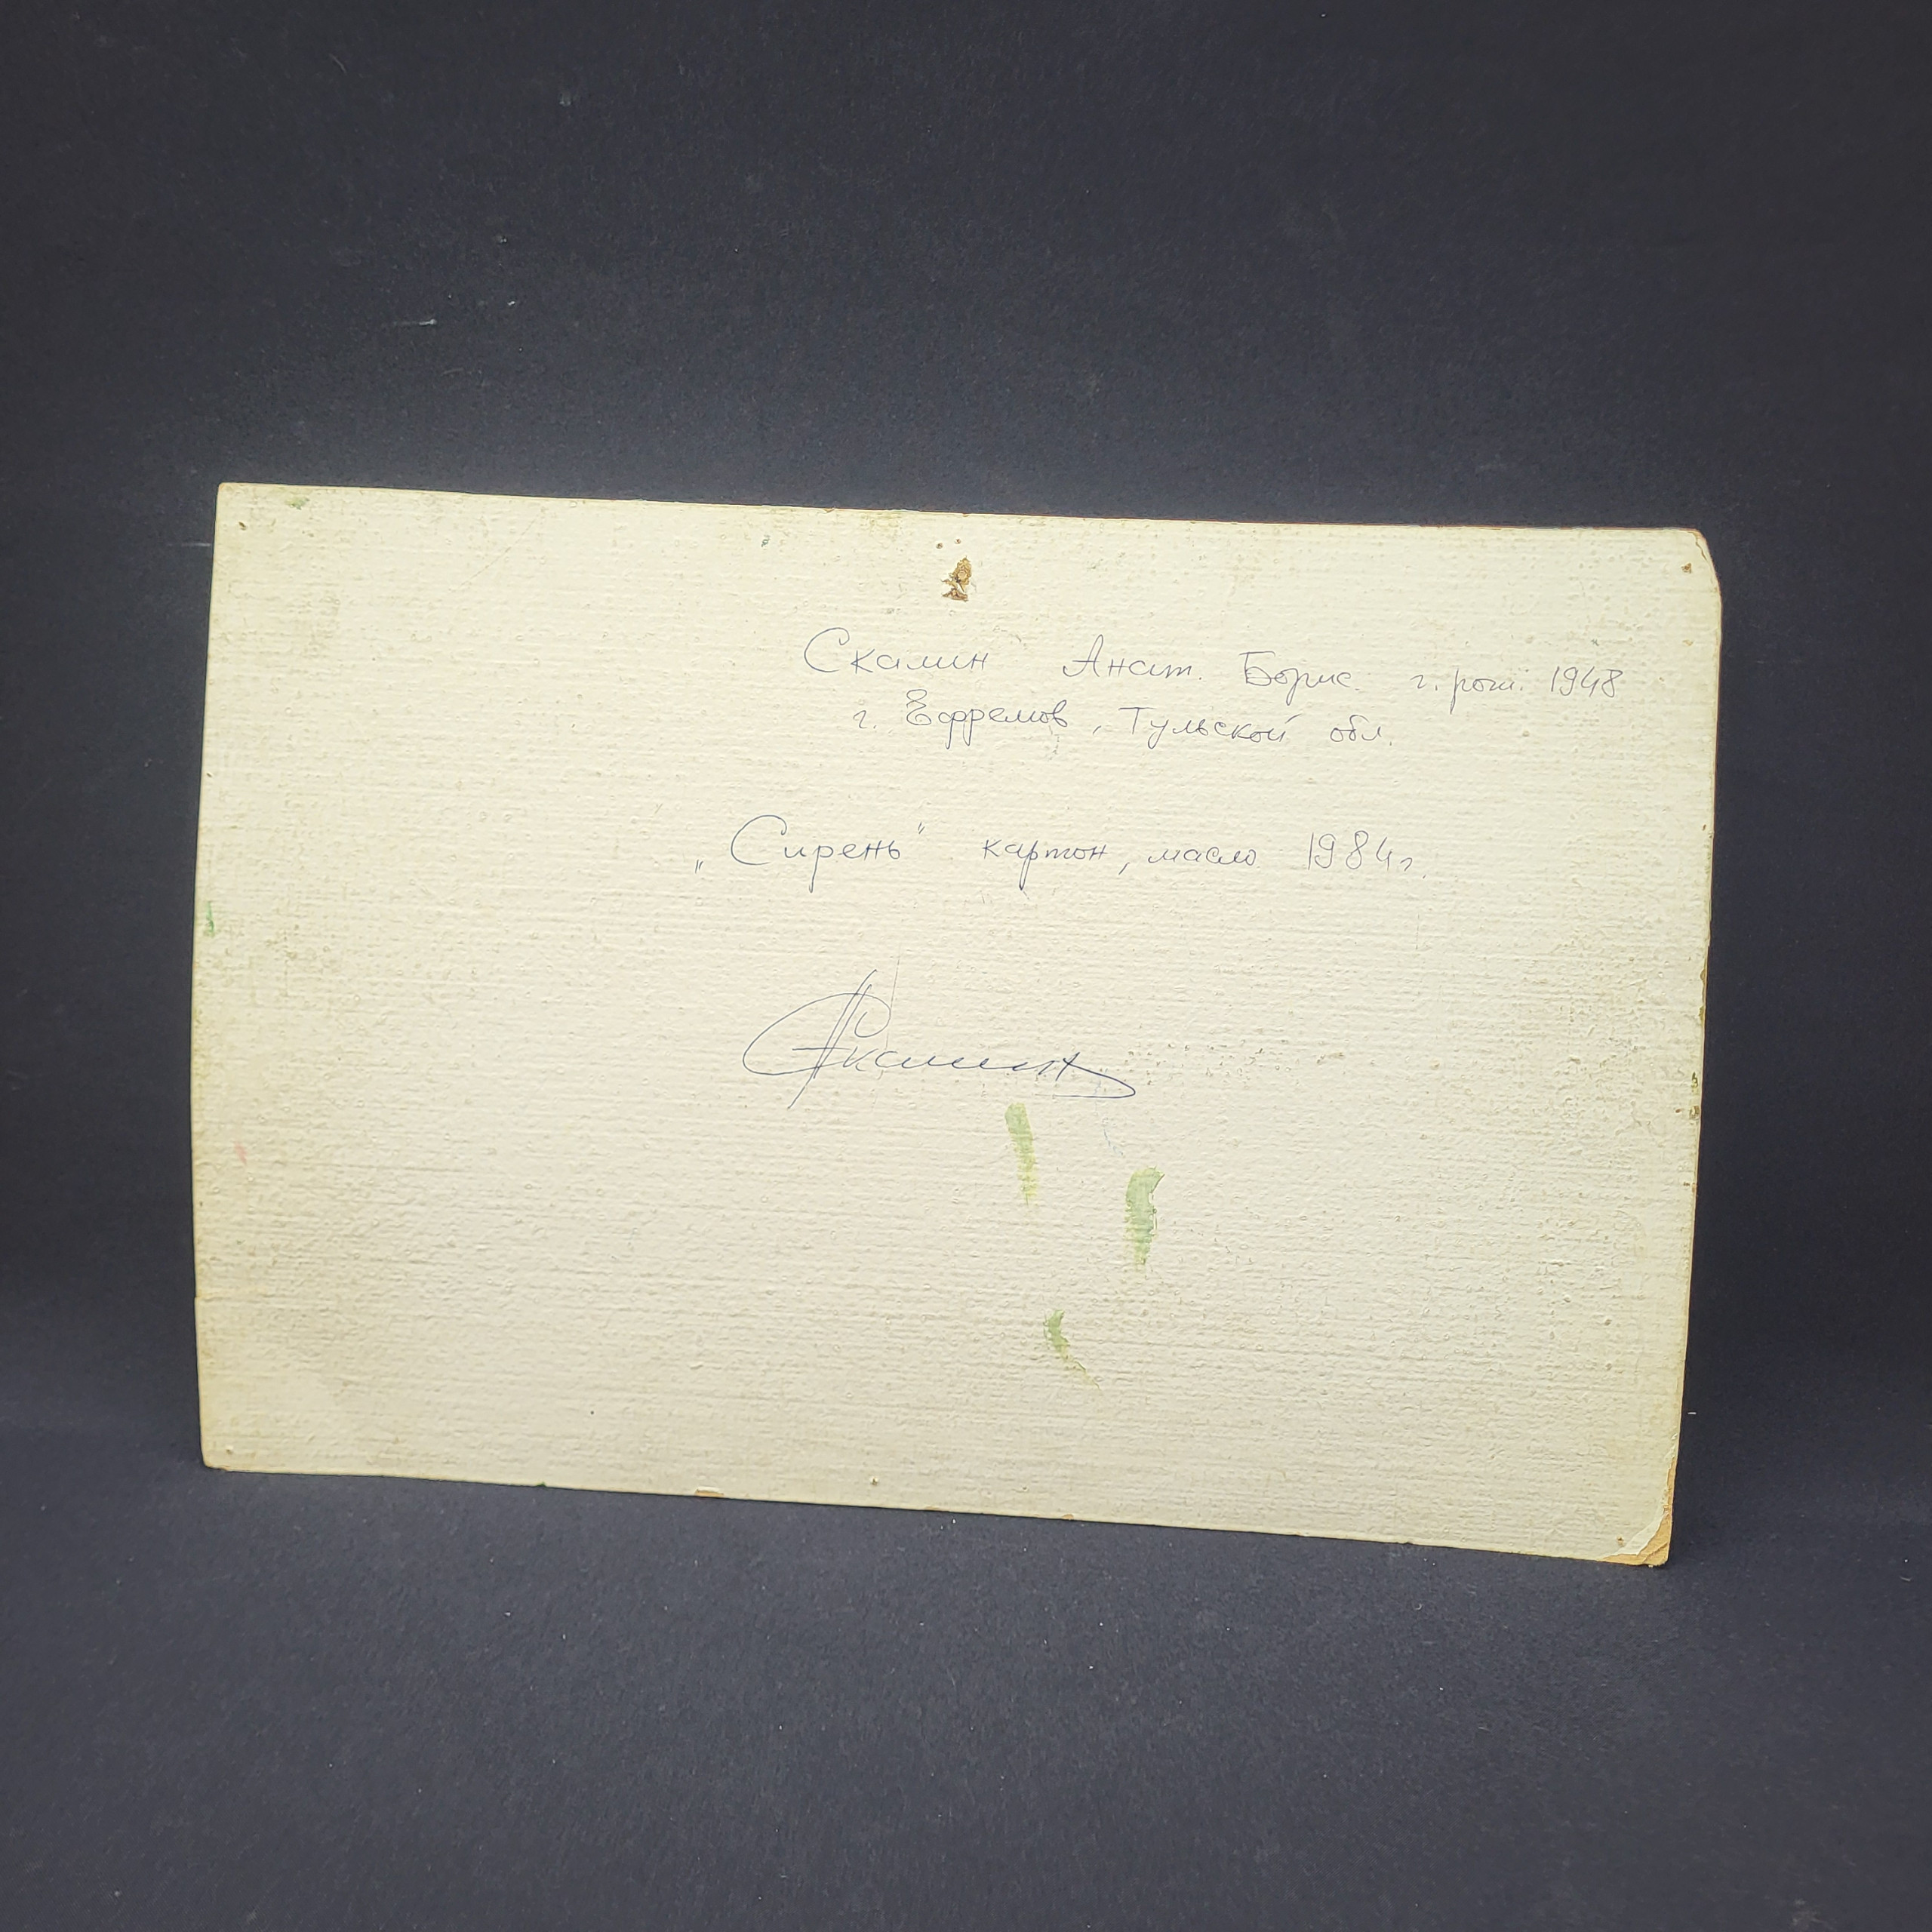 Скалин Анат. Борис. г. рож. 1948
г. Ефремов, Тульской обл.
„Сирень" картон, масло 1984г.
Скалин